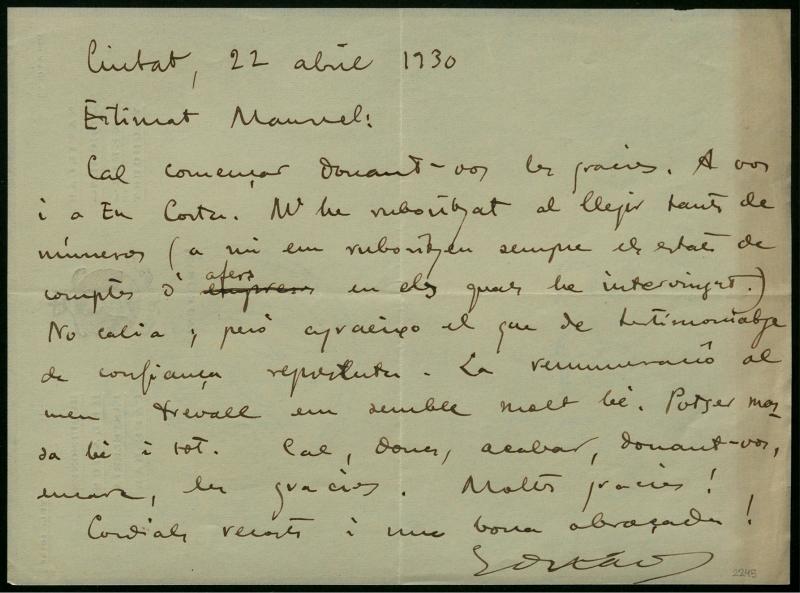 Ciutat, 22 abril 1930
Estimat Manuel:
Cal començar donant-vos les gracies. A vos
i a En Costa. M'he ruboritzat al llegir tants de
números (a mi em ruboritzen sempre els estats de
comptes d' afers empreses en els quals he intervingut.)
No calia; però agraeixo el que de testimoniatge
de confiança representa. La remuneració al
meu trevall em sembla molt bé. Potser mas-
sa bé i tot. Cal, doncs, acabar, donant-vos,
encara, les gracies. Moltes gracies!
Cordials records i una bona abraçada!
2245